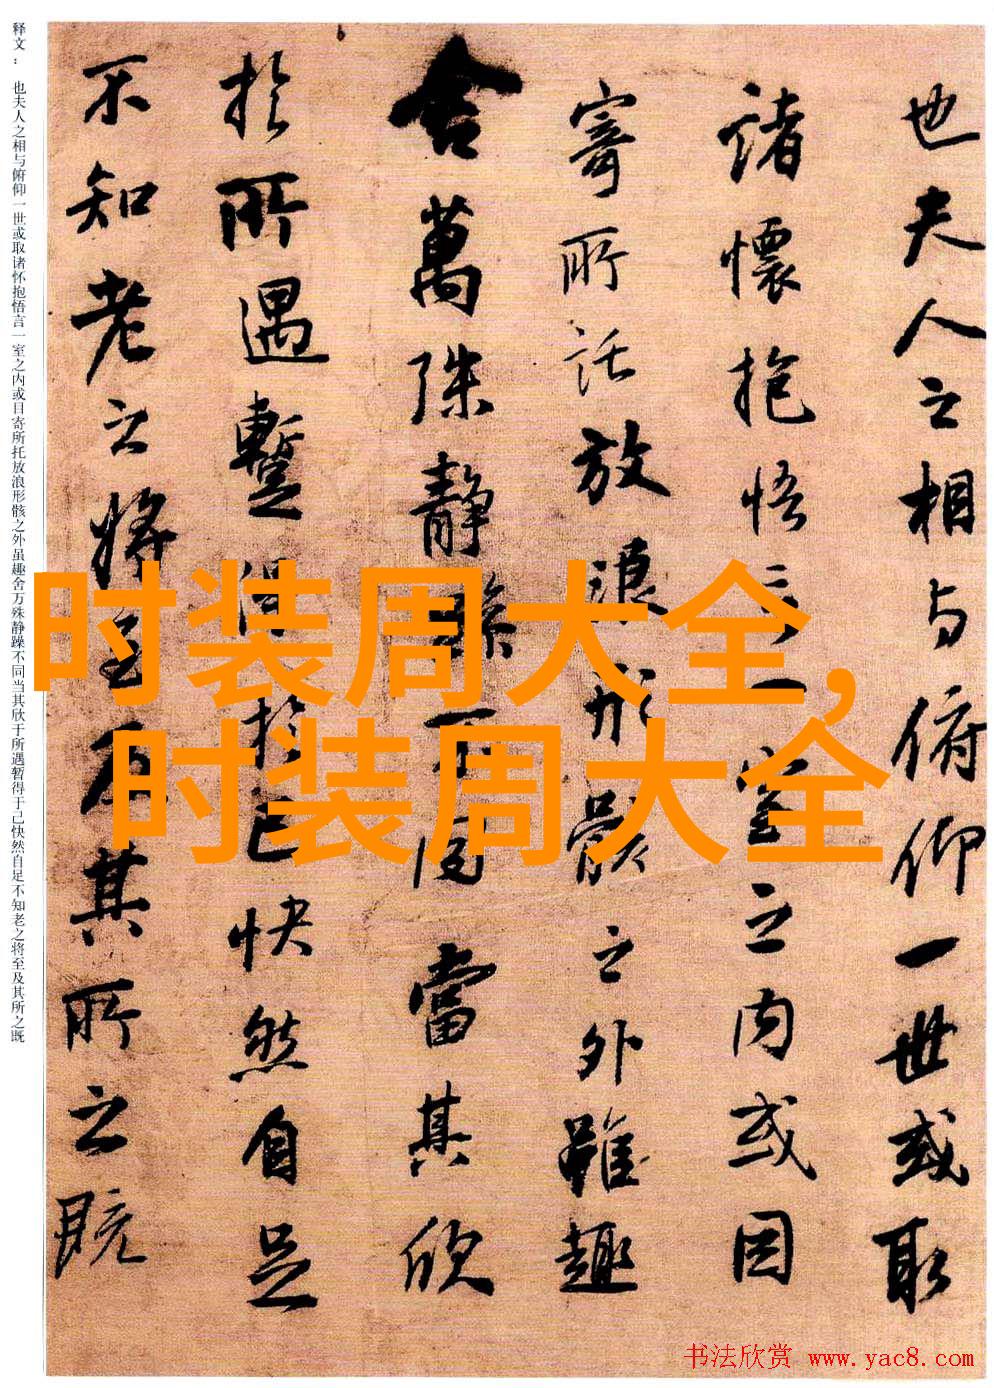 也夫人之相与俯仰一世或取
諸懷抱悟言一室之内或因
寄所託放浪形骸之外雖趣
舍萬殊静躁不同當其欣
於所遇暫得於己快然自足
不知老之將至及其所之既
释文： 也夫人之相与俯仰一世或取诸怀抱悟言一室之内或目寄所托放浪形骸之外虽趣舍万殊静躁不同当其欣于所遇暂得于己快然自足不知老之将至及其所之既
时装周大全,
时装周大全
书法欣赏 www.yac8.com